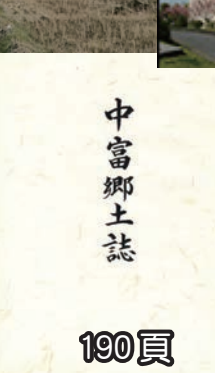 中富郷土誌
190頁